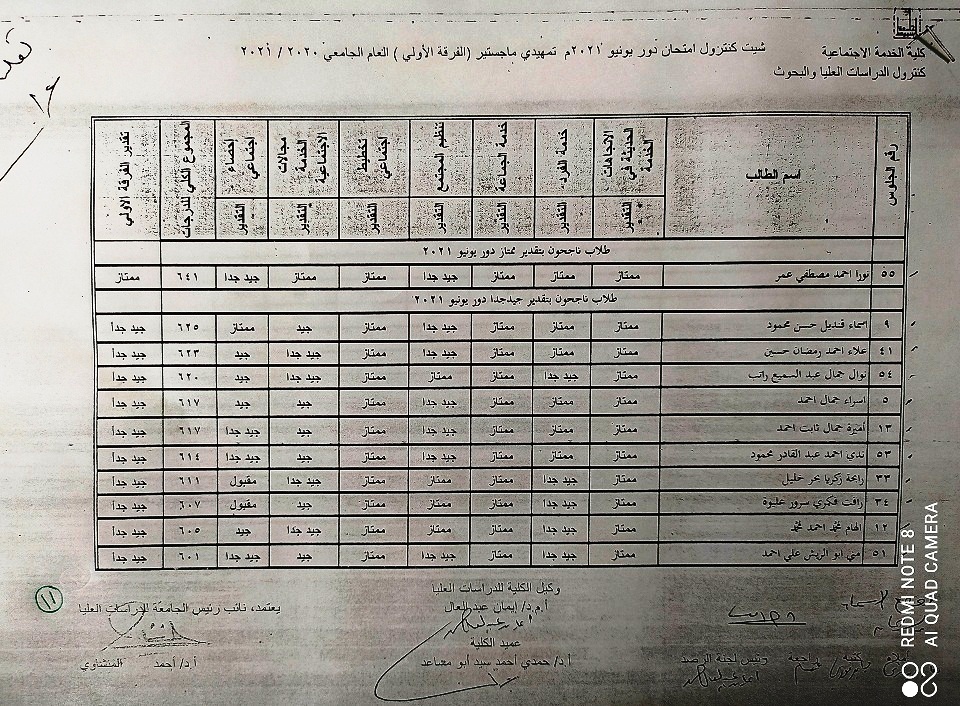 كلية الخدمة الاجتماعية
كنترول الدراسات العليا والبحوث
شيت كنترول امتحان دور يونيو ٢٠٢١م تمهيدي ماجستير (الفرقة الأولي) العام الجامعي ٢٠٢٠ / ٢٠٢١
رقم الجلوس | اسم الطالب | الاتجاهات الحديثة في الخدمة | خدمة الفرد | خدمة الجماعة | تنظيم المجتمع | تخطيط اجتماعي | مجالات الخدمة الاجتماعية | إحصاء اجتماعي | المجموع الكلي للدرجات | تقدير الفرقة الأولي
التقدير | التقدير | التقدير | التقدير | التقدير | التقدير | التقدير
طلاب ناجحون بتقدير ممتاز دور يونيو ٢٠٢١
٥٥ | نورا احمد مصطفي عمر | ممتاز | ممتاز | ممتاز | جيد جدا | ممتاز | ممتاز | جيد جدا | ٦٤١ | ممتاز
طلاب ناجحون بتقدير جيدجدا دور يونيو ٢٠٢١
٩ | اسماء قنديل حسن محمود | ممتاز | ممتاز | ممتاز | جيد جدا | ممتاز | جيد | ممتاز | ٦٢٥ | جيد جدأ
٤١ | علاء احمد رمضان حسين | ممتاز | ممتاز | ممتاز | جيد جدا | ممتاز | جيد جدا | جيد | ٦٢٣ | جيد جدأ
٥٤ | نوال جمال عبد السميع راتب | ممتاز | جيد جدا | ممتاز | ممتاز | ممتاز | جيد جدا | جيد | ٦٢٠ | جيد جدأ
٥ | اسراء جمال احمد | ممتاز | ممتاز | ممتاز | جيد جدا | ممتاز | جيد | جيد | ٦١٧ | جيد جدأ
١٣ | أميرة جمال ثابت احمد | ممتاز | ممتاز | ممتاز | جيد جدا | ممتاز | جيد | جيد جدا | ٦١٧ | جيد جدأ
٥٣ | ندى احمد عبد القادر محمود | ممتاز | ممتاز | ممتاز | جيد جدا | ممتاز | جيد جدا | جيد جدا | ٦١٤ | جيد جدأ
٣٣ | رابحة زكريا بحر خليل | ممتاز | جيد جدا | ممتاز | ممتاز | ممتاز | جيد جدا | مقبول | ٦١١ | جيد جدأ
٣٤ | رافت فكري سرور | ممتاز | جيد جدا | ممتاز | ممتاز | ممتاز | جيد | مقبول | ٦٠٧ | جيد جدأ
١٢ | الهام محمد احمد محمد | ممتاز | جيد جدا | ممتاز | ممتاز | ممتاز | جيد جدا | جيد | ٦٠٥ | جيد جدأ
٥١ | مي ابو الريش علي احمد | ممتاز | جيد جدا | ممتاز | جيد جدا | ممتاز | جيد | جيد جدا | ٦٠١ | جيد جدأ
وكيل الكلية للدراسات العليا
أ.م.د/ إيمان عبد العال
عميد الكلية
أ.د/ حمدي أحمد سيد أبو مساعد
يعتمد، نائب رئيس الجامعة للدراسات العليا
أ.د/ أحمد المنشاوي
رئيس لجنة الرصد
١١
REDMI NOTE 8
AI QUAD CAMERA